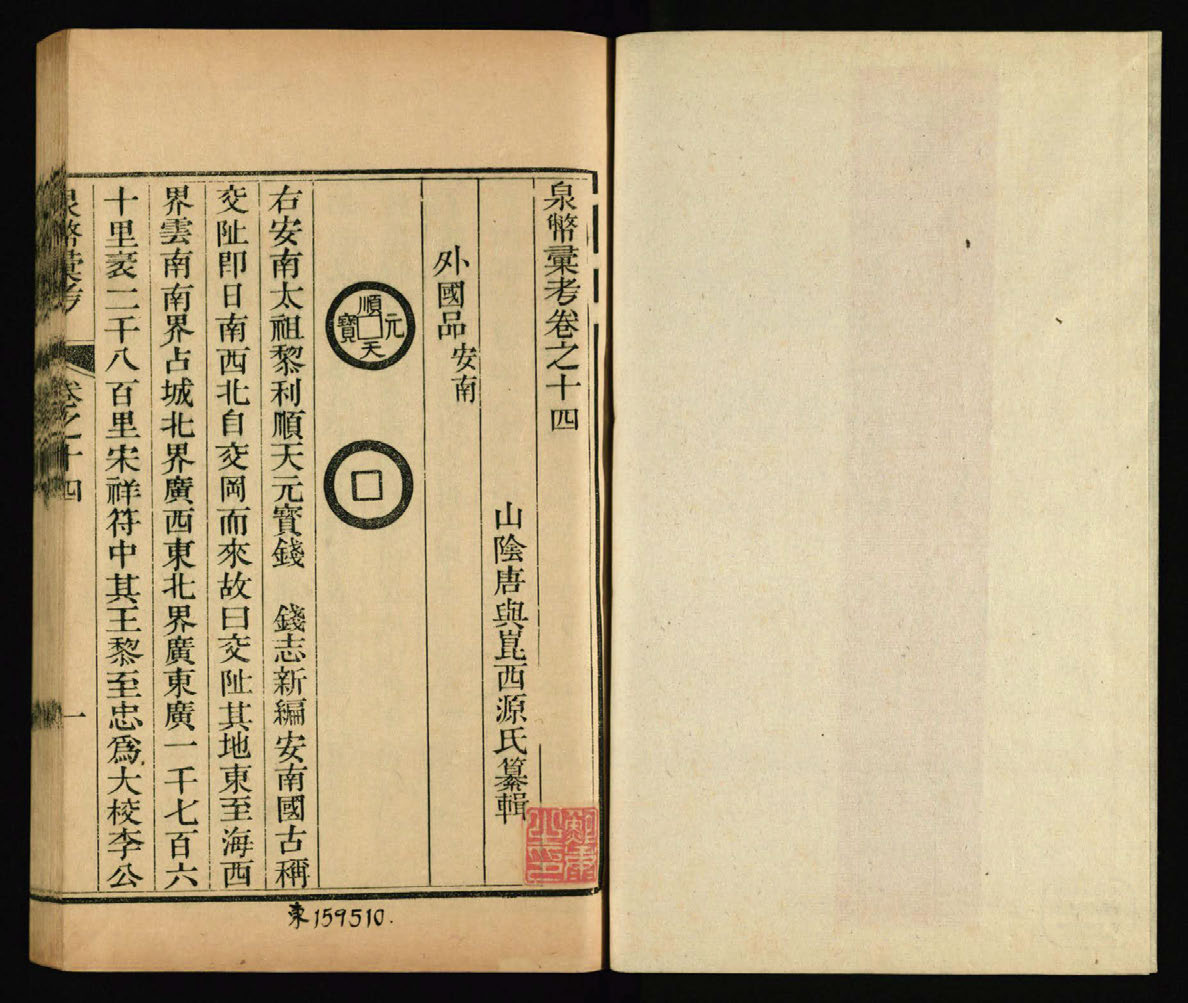 泉幣彙考卷之十四
山陰唐與崑西源氏纂輯
外國品安南
順天元寶
右安南太祖黎利順天元寶錢 錢志新編安南國古稱
交阯即日南西北自交岡而來故曰交阯其地東至海西
界雲南南界占城北界廣西東北界廣東廣一千七百六
十里袤二千八百里宋祥符中其王黎至忠爲大校李公
泉幣彙考 卷之十四 一
東159510.